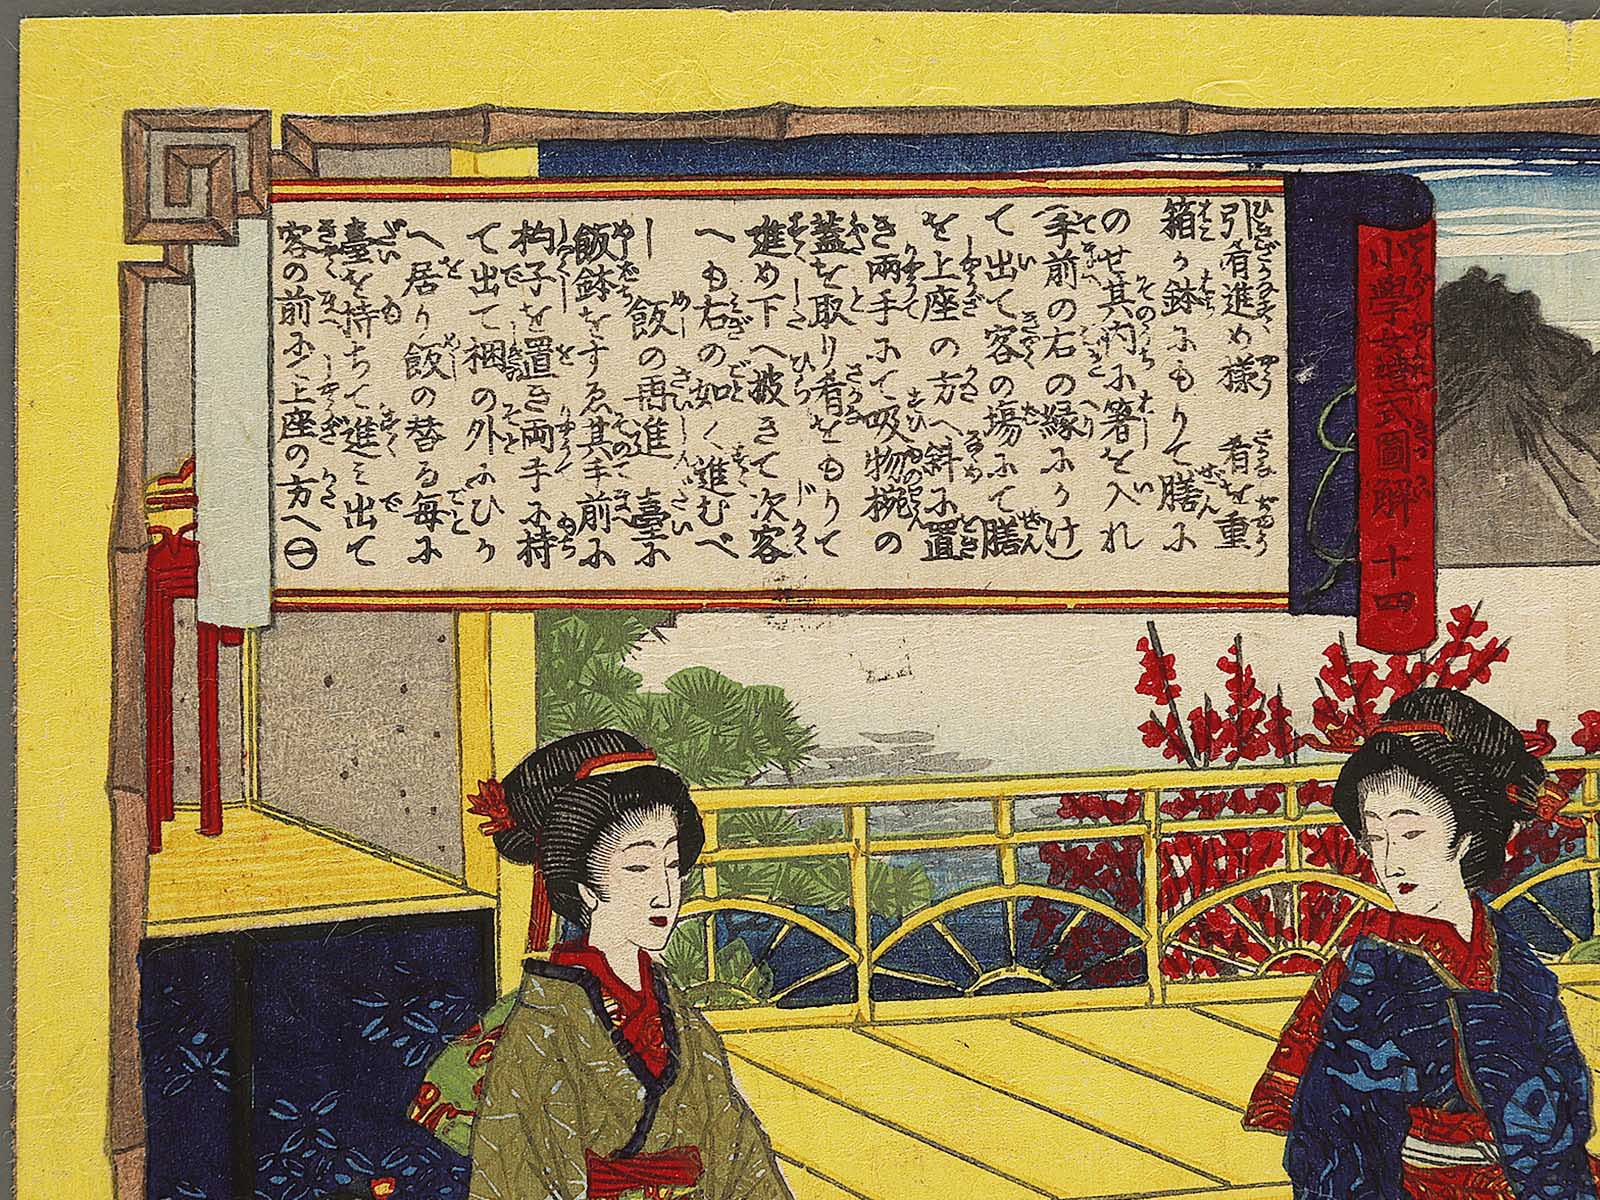 小學女禮式圖解 十四
引肴進め様 肴を重
箱か鉢にもりて膳に
のせ其内に箸を入れ
手前の右の縁にかけ
て出て客の場にて膳
を上座の方へ斜に置
き兩手にて吸物椀の
蓋を取り肴をもりて
進め下へ披きて次客
へも右の如く進むべ
し 飯の再進 臺に
飯鉢をすゑ其手前に
杓子を置き両手に持
て出て梱の外にひか
へ居り飯の替る毎に
臺を持ちて進み出て
客の前に上座の方へ㊀